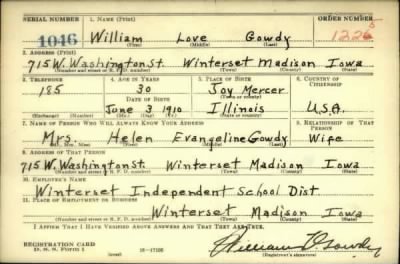 SERIAL NUMBER 1. NAME (Print) ORDER NUMBER
1046 William Love Gowdy 1226
(First) (Middle) (Last)
2. ADDRESS (Print)
715 W. Washington St. Winterset Madison Iowa
(Number and street or R. F. D. number) (Town) (County) (State)
3. TELEPHONE 4. AGE IN YEARS 5. PLACE OF BIRTH 6. COUNTRY OF CITIZENSHIP
185 30 Joy Mercer
DATE OF BIRTH
June 3 1910 Illinois U.S.A.
7. NAME OF PERSON WHO WILL ALWAYS KNOW YOUR ADDRESS 8. RELATIONSHIP OF THAT PERSON
Mrs. Helen Evangeline Gowdy Wife
9. ADDRESS OF THAT PERSON
715 W. Washington St. Winterset Madison Iowa
(Number and street or R. F. D. number) (Town) (County) (State)
10. EMPLOYER'S NAME
Winterset Independent School Dist.
11. PLACE OF EMPLOYMENT OR BUSINESS
Winterset Madison Iowa
(Number and street or R. F. D. number) (Town) (County) (State)
I AFFIRM THAT I HAVE VERIFIED ABOVE ANSWERS AND THAT THEY ARE TRUE.
REGISTRATION CARD
D. S. S. Form 1 (over) 16-17105 (Registrant's signature)